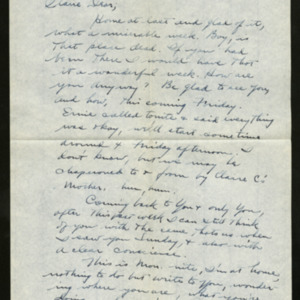 Home at last and glad of it,
what a miserable week. Boy is
that place dead. If you had
been there I would have thot
it a wonderful week. How are
you anyway? Be glad to see you,
and how, this coming Friday.
Ernie called tonite & said everything
was okay, we'll start sometime
around 4 Friday afternoon. I
don't know, but we may be
chaperoned to & from by
Mother. hum, hum.
Coming back to You & only You,
after this past week I can still think
of you with the same, as when
I saw you Sunday, & also with
a clear conscience.
This is Mon. nite, I'm at home,
nothing to do but write to you, wonder-
ing where you are, what you're
doing